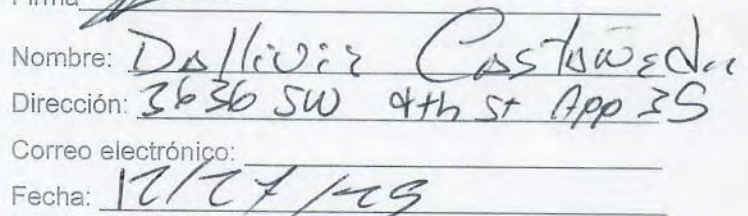 Firma
Nombre: Dollivir Castañeda
Dirección: 3636 SW 4th St App 3S
Correo electrónico:
Fecha: 12/27/25